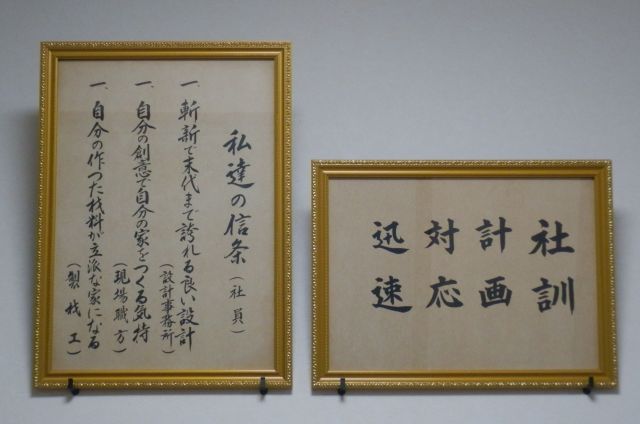 私達の信条(社員)
一、斬新で末代まで誇れる良い設計
(設計事務所)
一、自分の創意で自分の家をつくる気持
(現場職方)
一、自分の作つた材料が立派な家になる
(製材工)
社訓
計画
対応
迅速